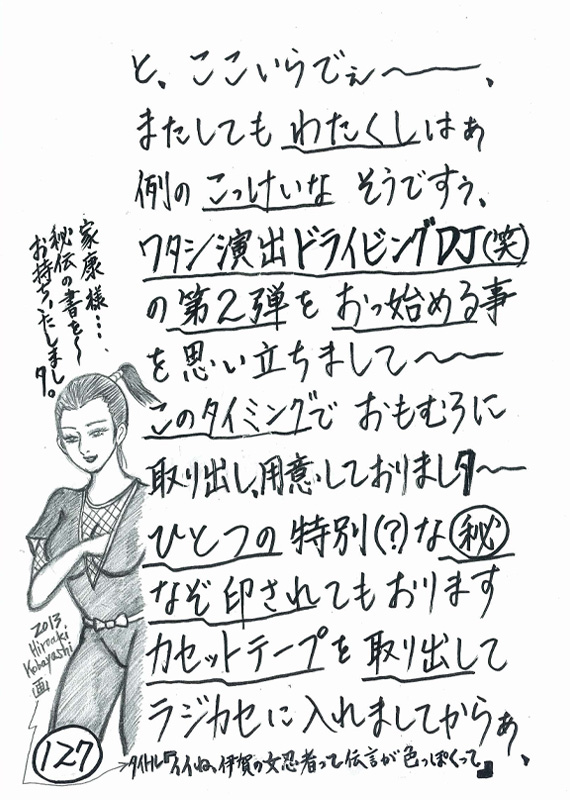 と、ここいらでぇ〜――、
またしても わたくしはぁ
例の こっけいな そうですぅ、
ワタシ演出ドライビングDJ(笑)
の第2弾を おっ始める事
を思い立ちまして〜〜―
このタイミングで おもむろに
取り出し、用意しておりましタ〜―
ひとつの 特別(?)な ㊙
なぞ 印されてもおります
カセットテープを 取り出して
ラジカセに 入れましてからぁ、
家康様…、
秘伝の書を〜
お持ちいたしましタ。
2013.
Hiroaki
Kobayashi
画
127
タイトル『イイね、伊賀の女忍者って伝言が色っぽくって。』